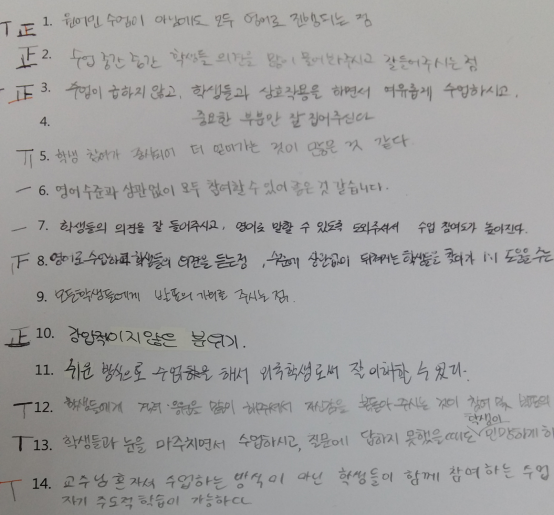 T 正 1. 원어민 수업이 아님에도 모두 영어로 진행되는 점
正 2. 수업 중간 중간 학생들 의견을 많이 물어봐주시고 잘 들어주시는 점
正 3. 수업이 급하지 않고, 학생들과 상호작용을 하면서 여유롭게 수업하시고,
4. 중요한 부분만 잘 집어주신다
T 5. 학생 참여가 되어 더 얻어가는 것이 많은 것 같다
一 6. 영어수준과 상관없이 모두 참여할 수 있어 좋은것 같습니다.
一 7. 학생들의 의견을 잘 들어주시고, 영어로 말할 수 있도록 도와주셔서 수업 참여도가 높아진다.
F 8. 영어로 수업하며 학생들의 의견을 듣는점, 수준에 상관없이 뒤쳐지는 학생들을 1:1 도움을 주는
9. 모든학생들에게 발표의 기회를 주시는 점.
正 10. 강압적이지 않은 분위기.
11. 쉬운 방식으로 수업을 해서 외국학생로써 잘 이해할 수 있다.
T 12. 학생들에게 격려 응원을 많이 해주셔서 자신감을 북돋아 주시는 것이 참여
학생이
T 13. 학생들과 눈을 마주치면서 수업하시고, 질문에 답하지 못했을때도 민망하게 하
T 14. 교수님 혼자서 수업하는 방식이 아닌 학생들이 함께 참여하는 수업
자기 주도적 학습이 가능하다